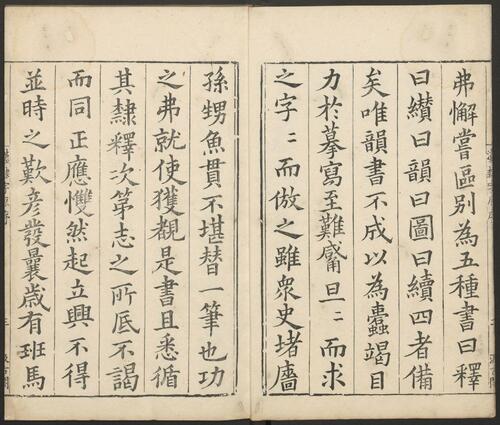 弗懈嘗區別為五種書曰釋
曰纘曰韻曰圖曰續四者備
矣唯韻書不成以為蠹竭目
力於摹寫至難㒺旦〻而求
之字〻而倣之雖衆史堵廧
孫甥魚貫不堪替一筆也功
之弗就使獲覩是書且悉循
其隸釋次第志之所底不謁
而同正應戄然起立興不得
並時之歎彦發曩歲有班馬